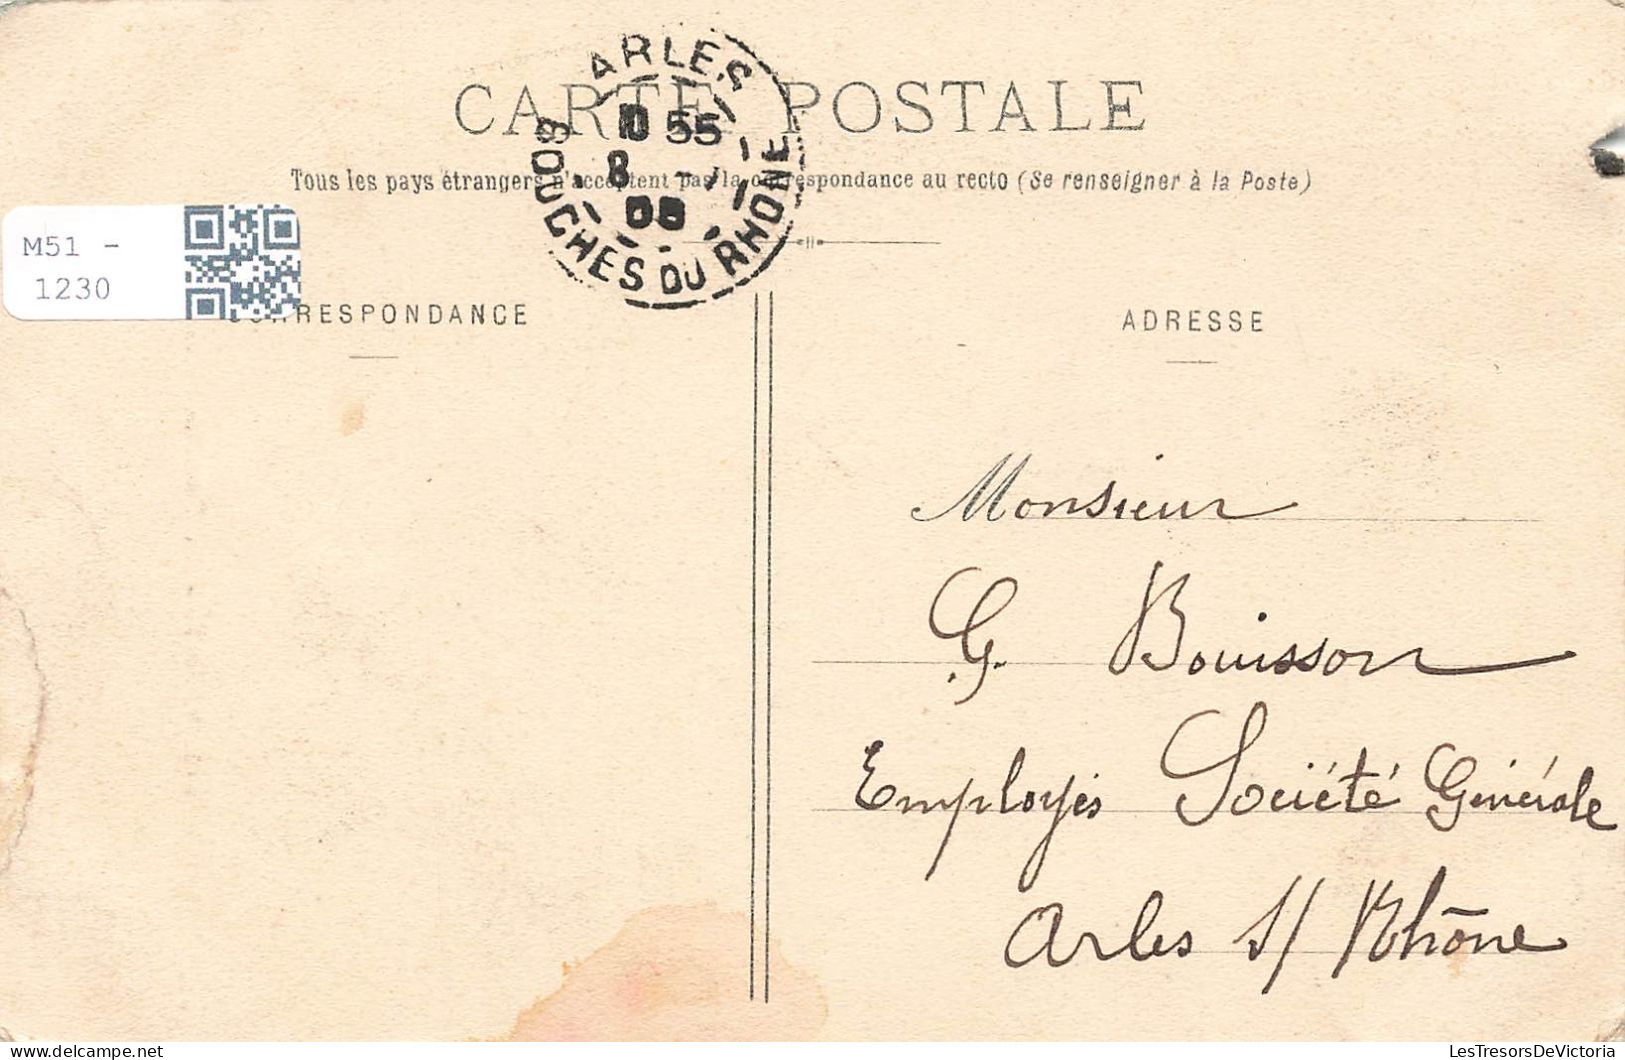 CARTE POSTALE
Tous les pays étrangers n'acceptent pas la correspondance au recto (Se renseigner à la Poste)
ARLES
55
8
BOUCHES DU RHONE
M51 -
1230
CORRESPONDANCE
ADRESSE
Monsieur
G. Bouisson
Employés Société Générale
Arles s/ Rhône
LesTresorsDeVictoria